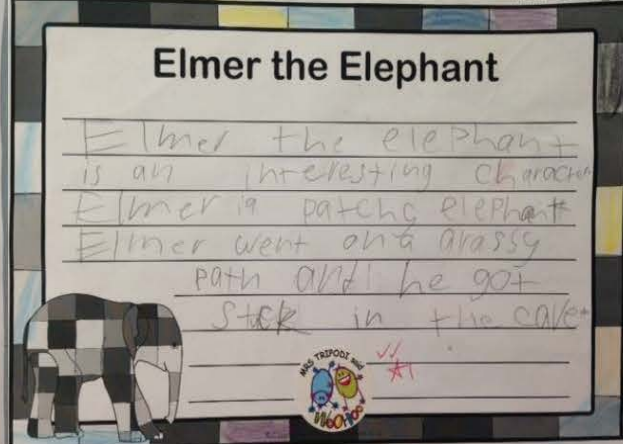 Elmer the Elephant
Elmer the elephant
is an interesting character
Elmer is patchg elephant
Elmer went on a grassy
path and he got
stuck in the cave
MRS TRIPODI said
WooHoo